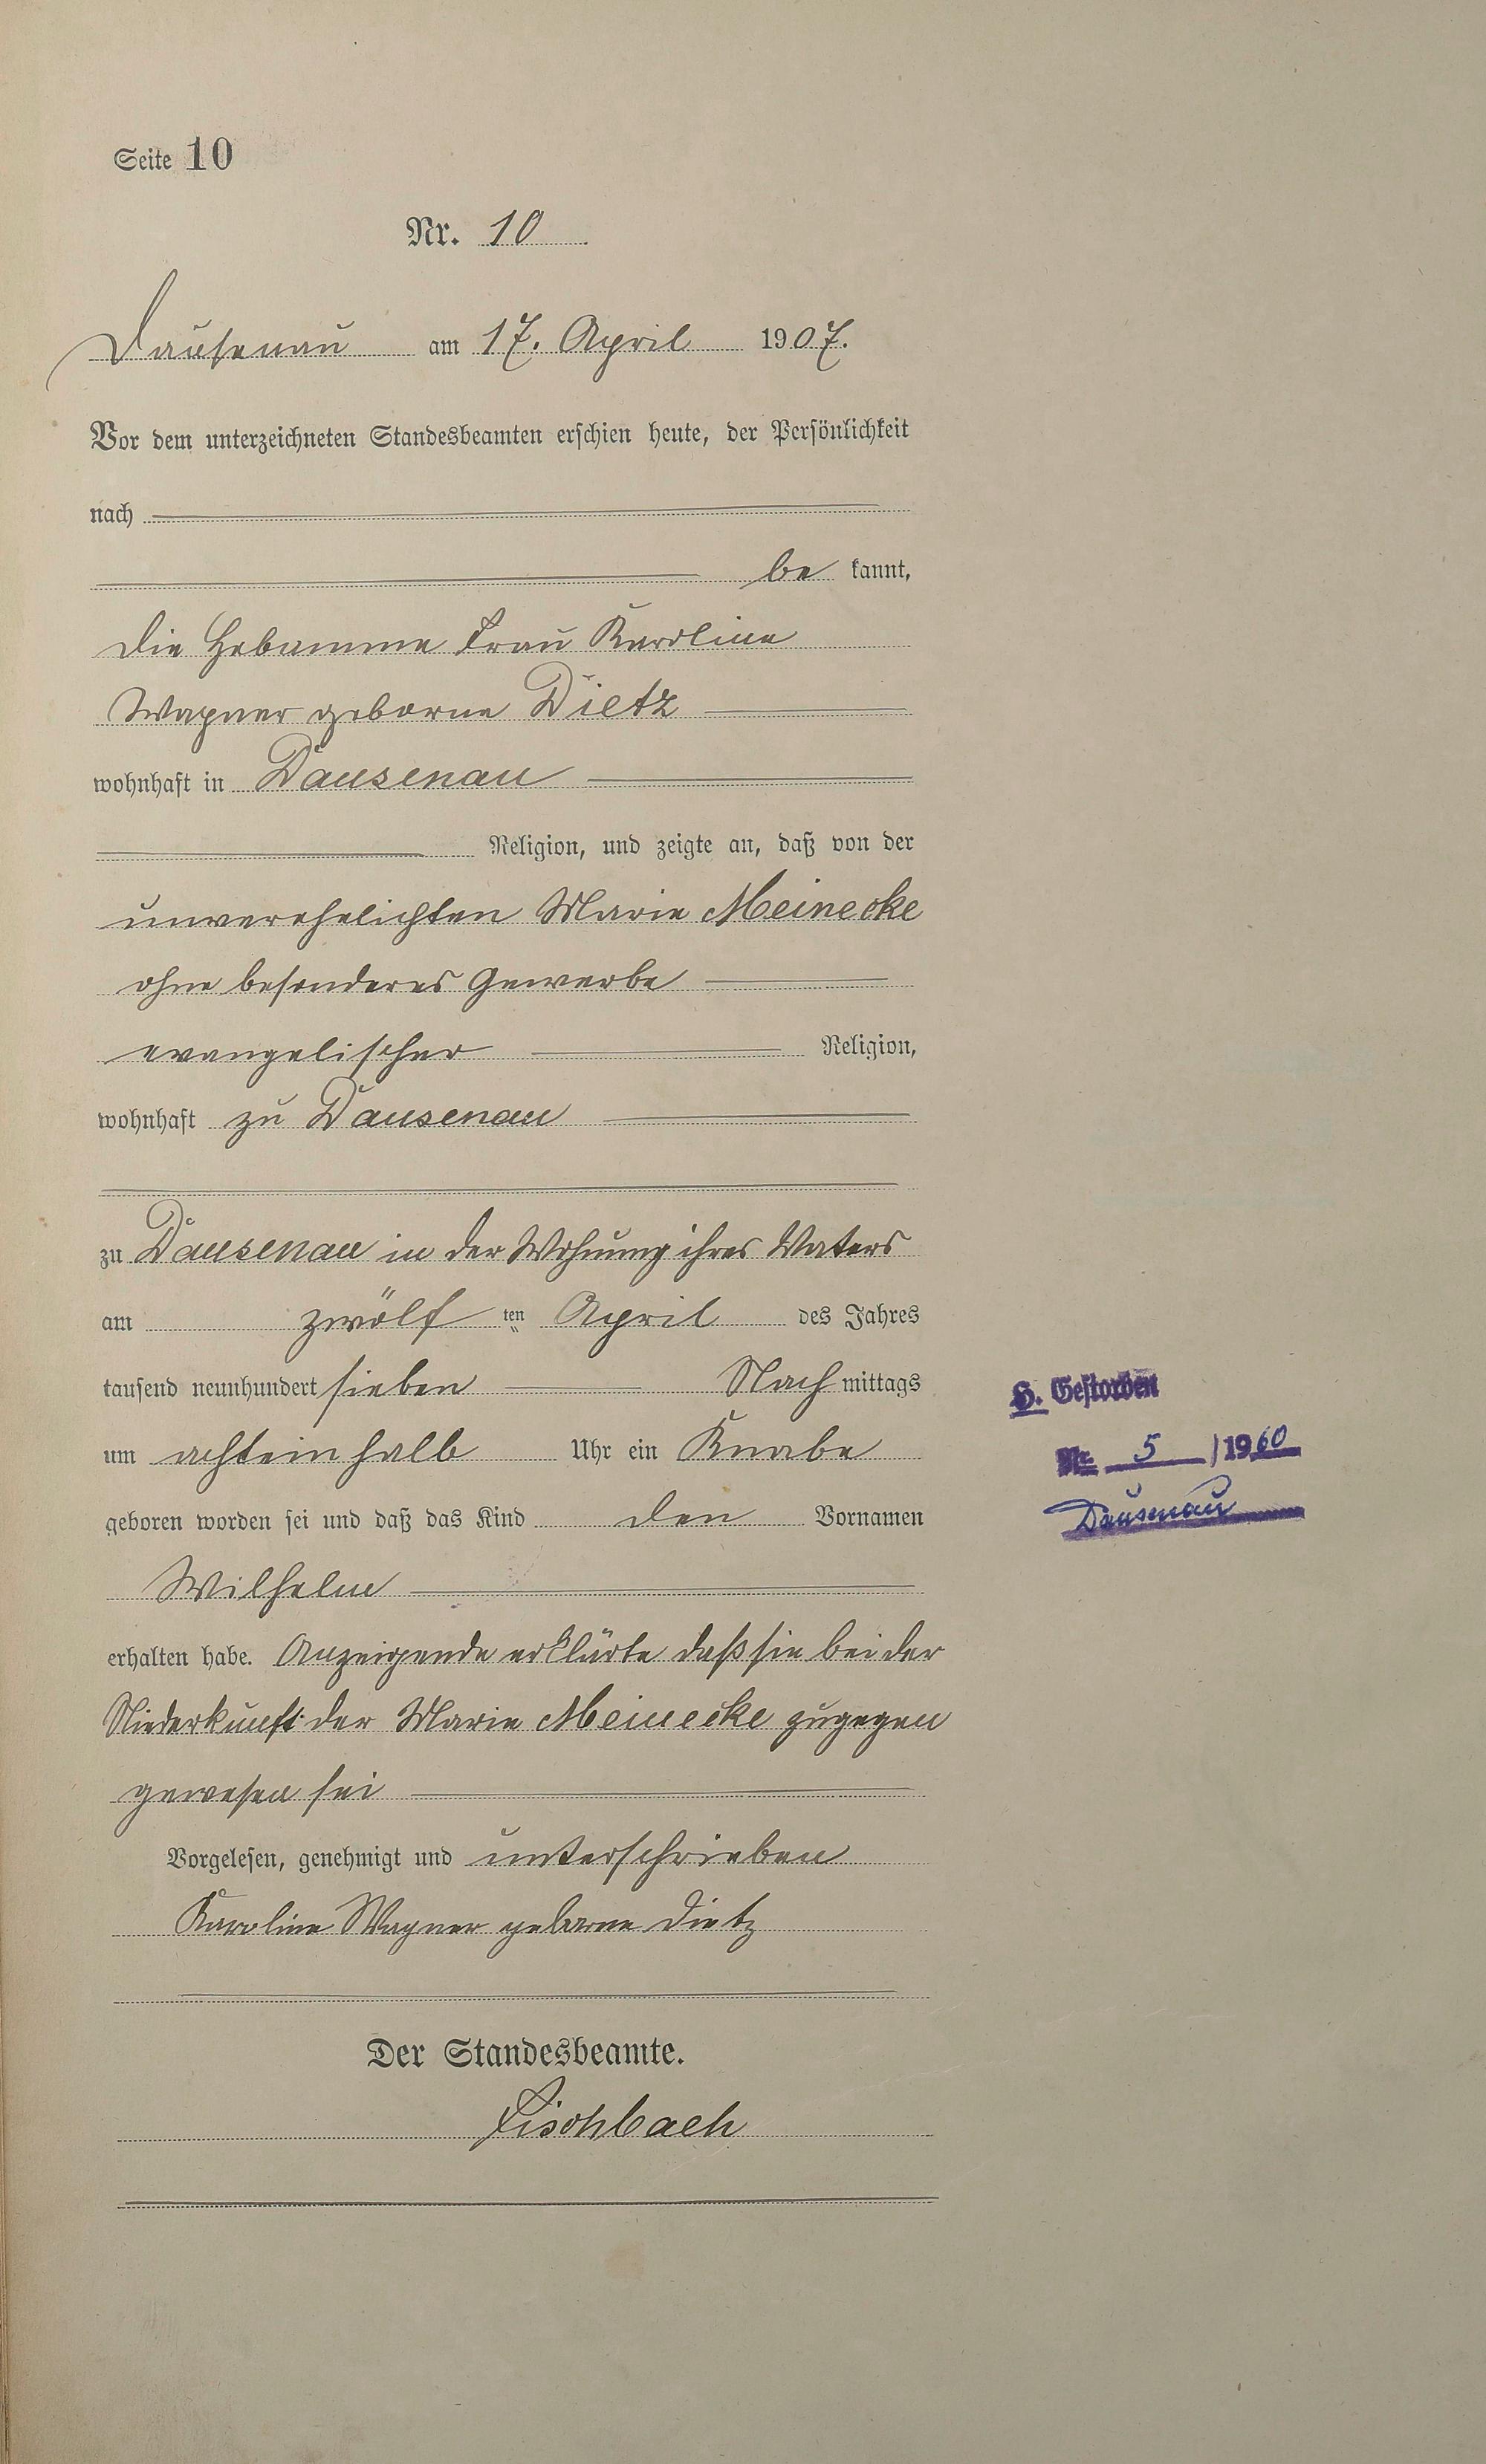 Seite 10
Nr. 10
Dausenau am 17. April 1907.
Vor dem unterzeichneten Standesbeamten erschien heute, der Persönlichkeit
nach
be kannt,
die Hebamme Frau Karoline
Wagner geborne Dietz
wohnhaft in Dausenau
Religion, und zeigte an, daß von der
unverehelichten Marie Meinecke
ohne besonderes Gewerbe
evangelischer Religion,
wohnhaft zu Dausenau
zu Dausenau in der Wohnung ihres Vaters
am zwölf ten April des Jahres
tausend neunhundert sieben Nach mittags
um achteinhalb Uhr ein Knabe
geboren worden sei und daß das Kind den Vornamen
Wilhelm
erhalten habe. Anzeigende erklärte daß sie bei der
Niederkunft der Marie Meinecke zugegen
gewesen sei
Vorgelesen, genehmigt und unterschrieben
Karoline Wagner geborne Dietz
Der Standesbeamte.
Fischbach
H. Gestorben
Nr. 5 / 1960
Dausenau